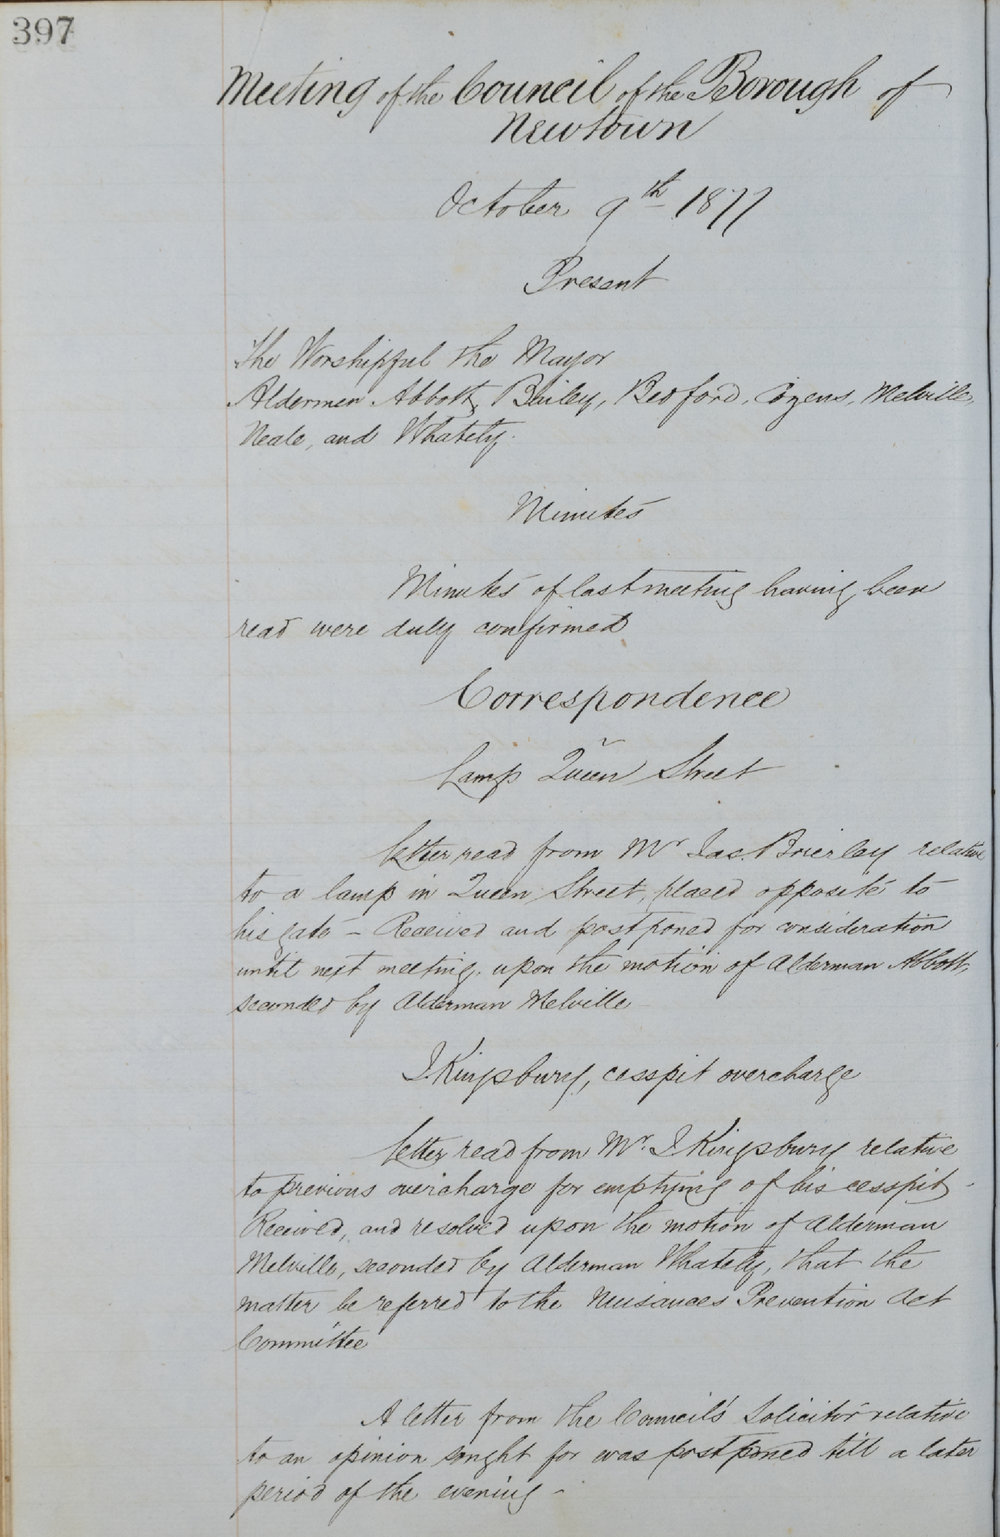 397
Meeting of the Council of the Borough of
Newtown
October 9th 1877
Present
The Worshipful the Mayor
Aldermen Abbott, Bailey, Bedford, Cozens, Melville,
Neale, and Whately.
Minutes
Minutes of last meeting having been
read were duly confirmed
Correspondence
Lamp Queen Street
Letter read from Mr Jas. Brierley relative
to a lamp in Queen Street, placed opposite to
his gate – Received and postponed for consideration
until next meeting, upon the motion of Alderman Abbott,
seconded by Alderman Melville
J. Kingsbury, cesspit overcharge
Letter read from Mr. J Kingsbury relative
to previous overcharge for emptying of his cesspit –
Received, and resolved upon the motion of Alderman
Melville, seconded by Alderman Whately, that the
matter be referred to the Nuisances Prevention Act
Committee
A letter from the Council's Solicitor relative
to an opinion sought for was postponed till a later
period of the evening –